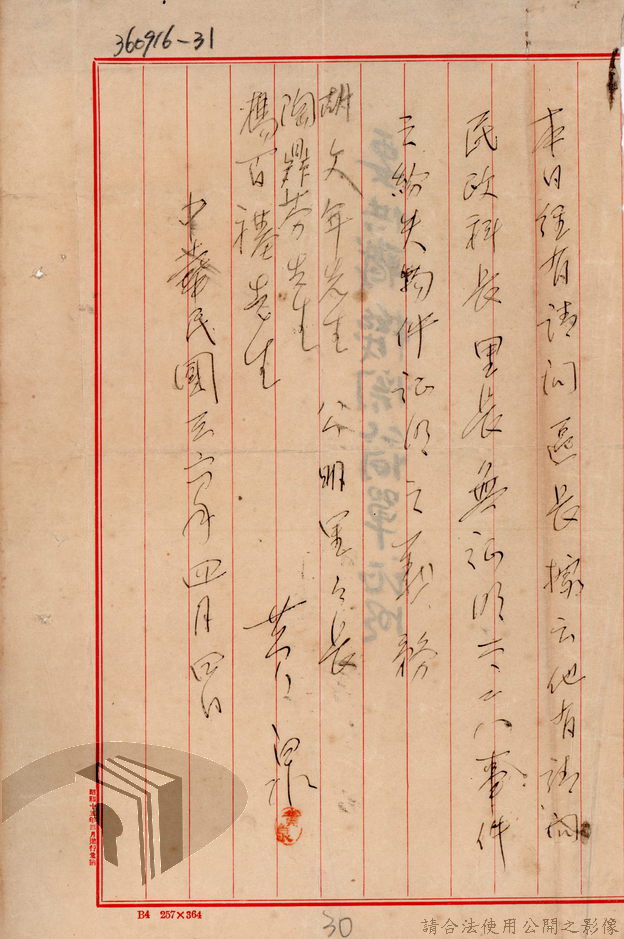 360916-31
本日經有請问區長據云他有請问
民政科長里長無証明二二八事件
之紛失物件証明之義務
胡文年先生
陶鼎芳先生
楊百禮先生
公明里々長
黄泉
黄泉
中華民國三六年四月四日
B4 257×364
30
請合法使用公開之影像